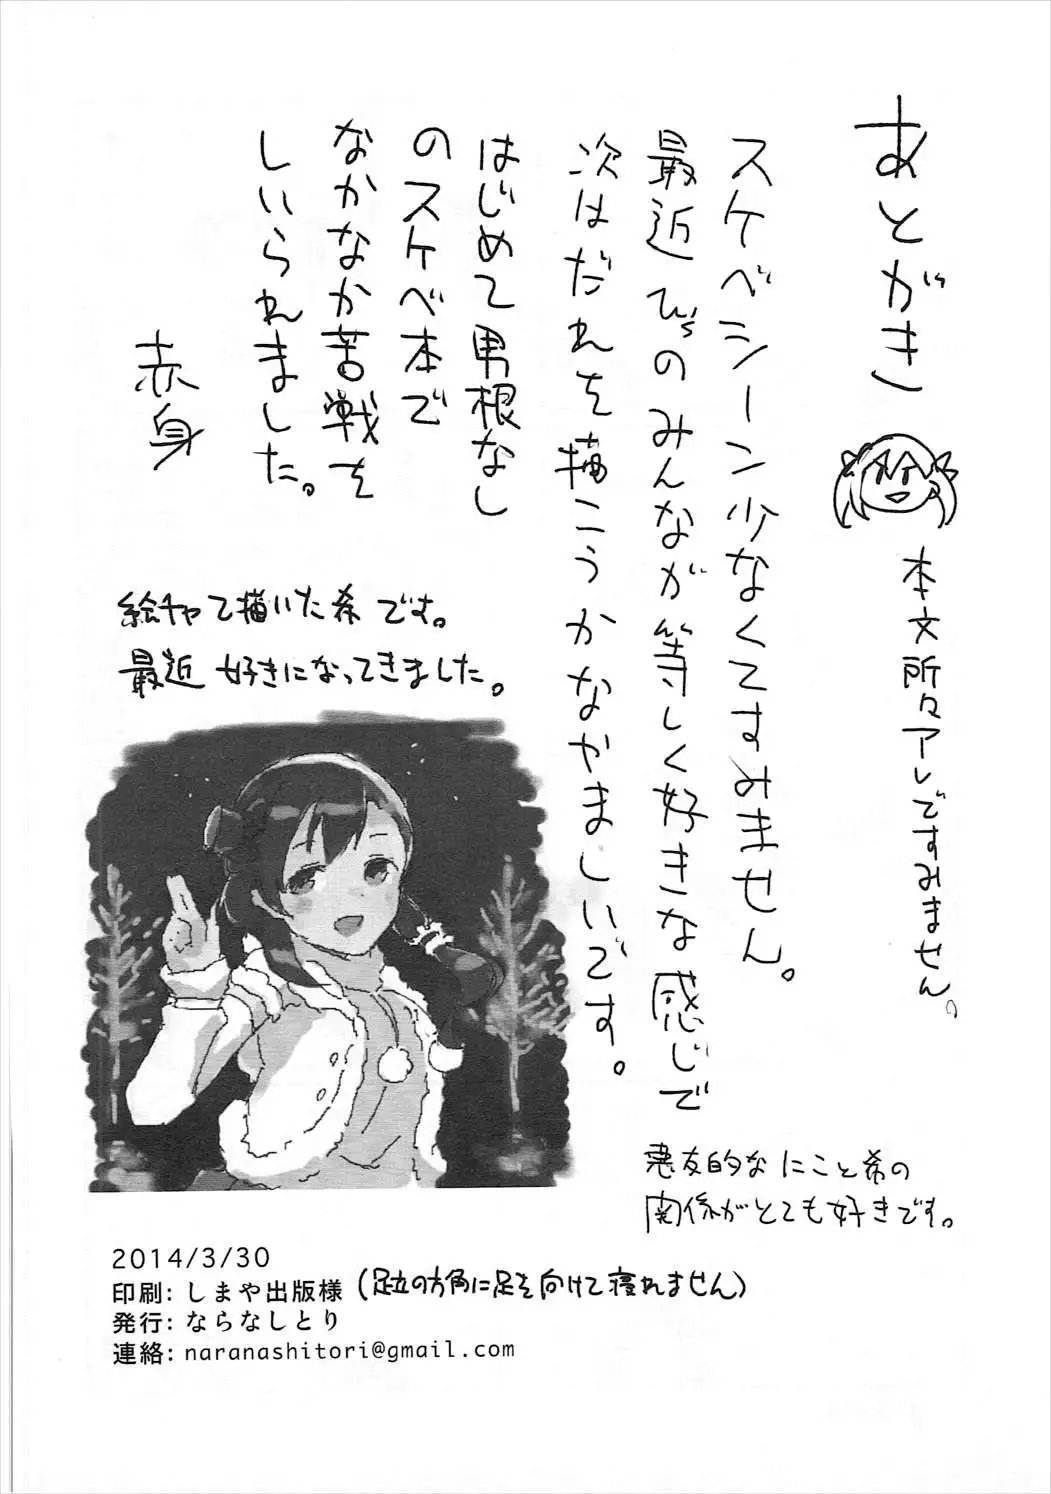 あとがき
本文所々アレですみません。
スケベシーン少なくてすみません。
最近μ'sのみんなが等しく好きな感じで
次はだれを描こうかなやましいです。
はじめて男根なし
のスケベ本で
なかなか苦戦を
しいられました。
赤身
絵チャで描いた希です。
最近好きになってきました。
悪友的なにこと希の
関係がとても好きです。
2014/3/30
印刷: しまや出版様 (足立の方角に足を向けて寝れません)
発行: ならなしとり
連絡: naranashitori@gmail.com